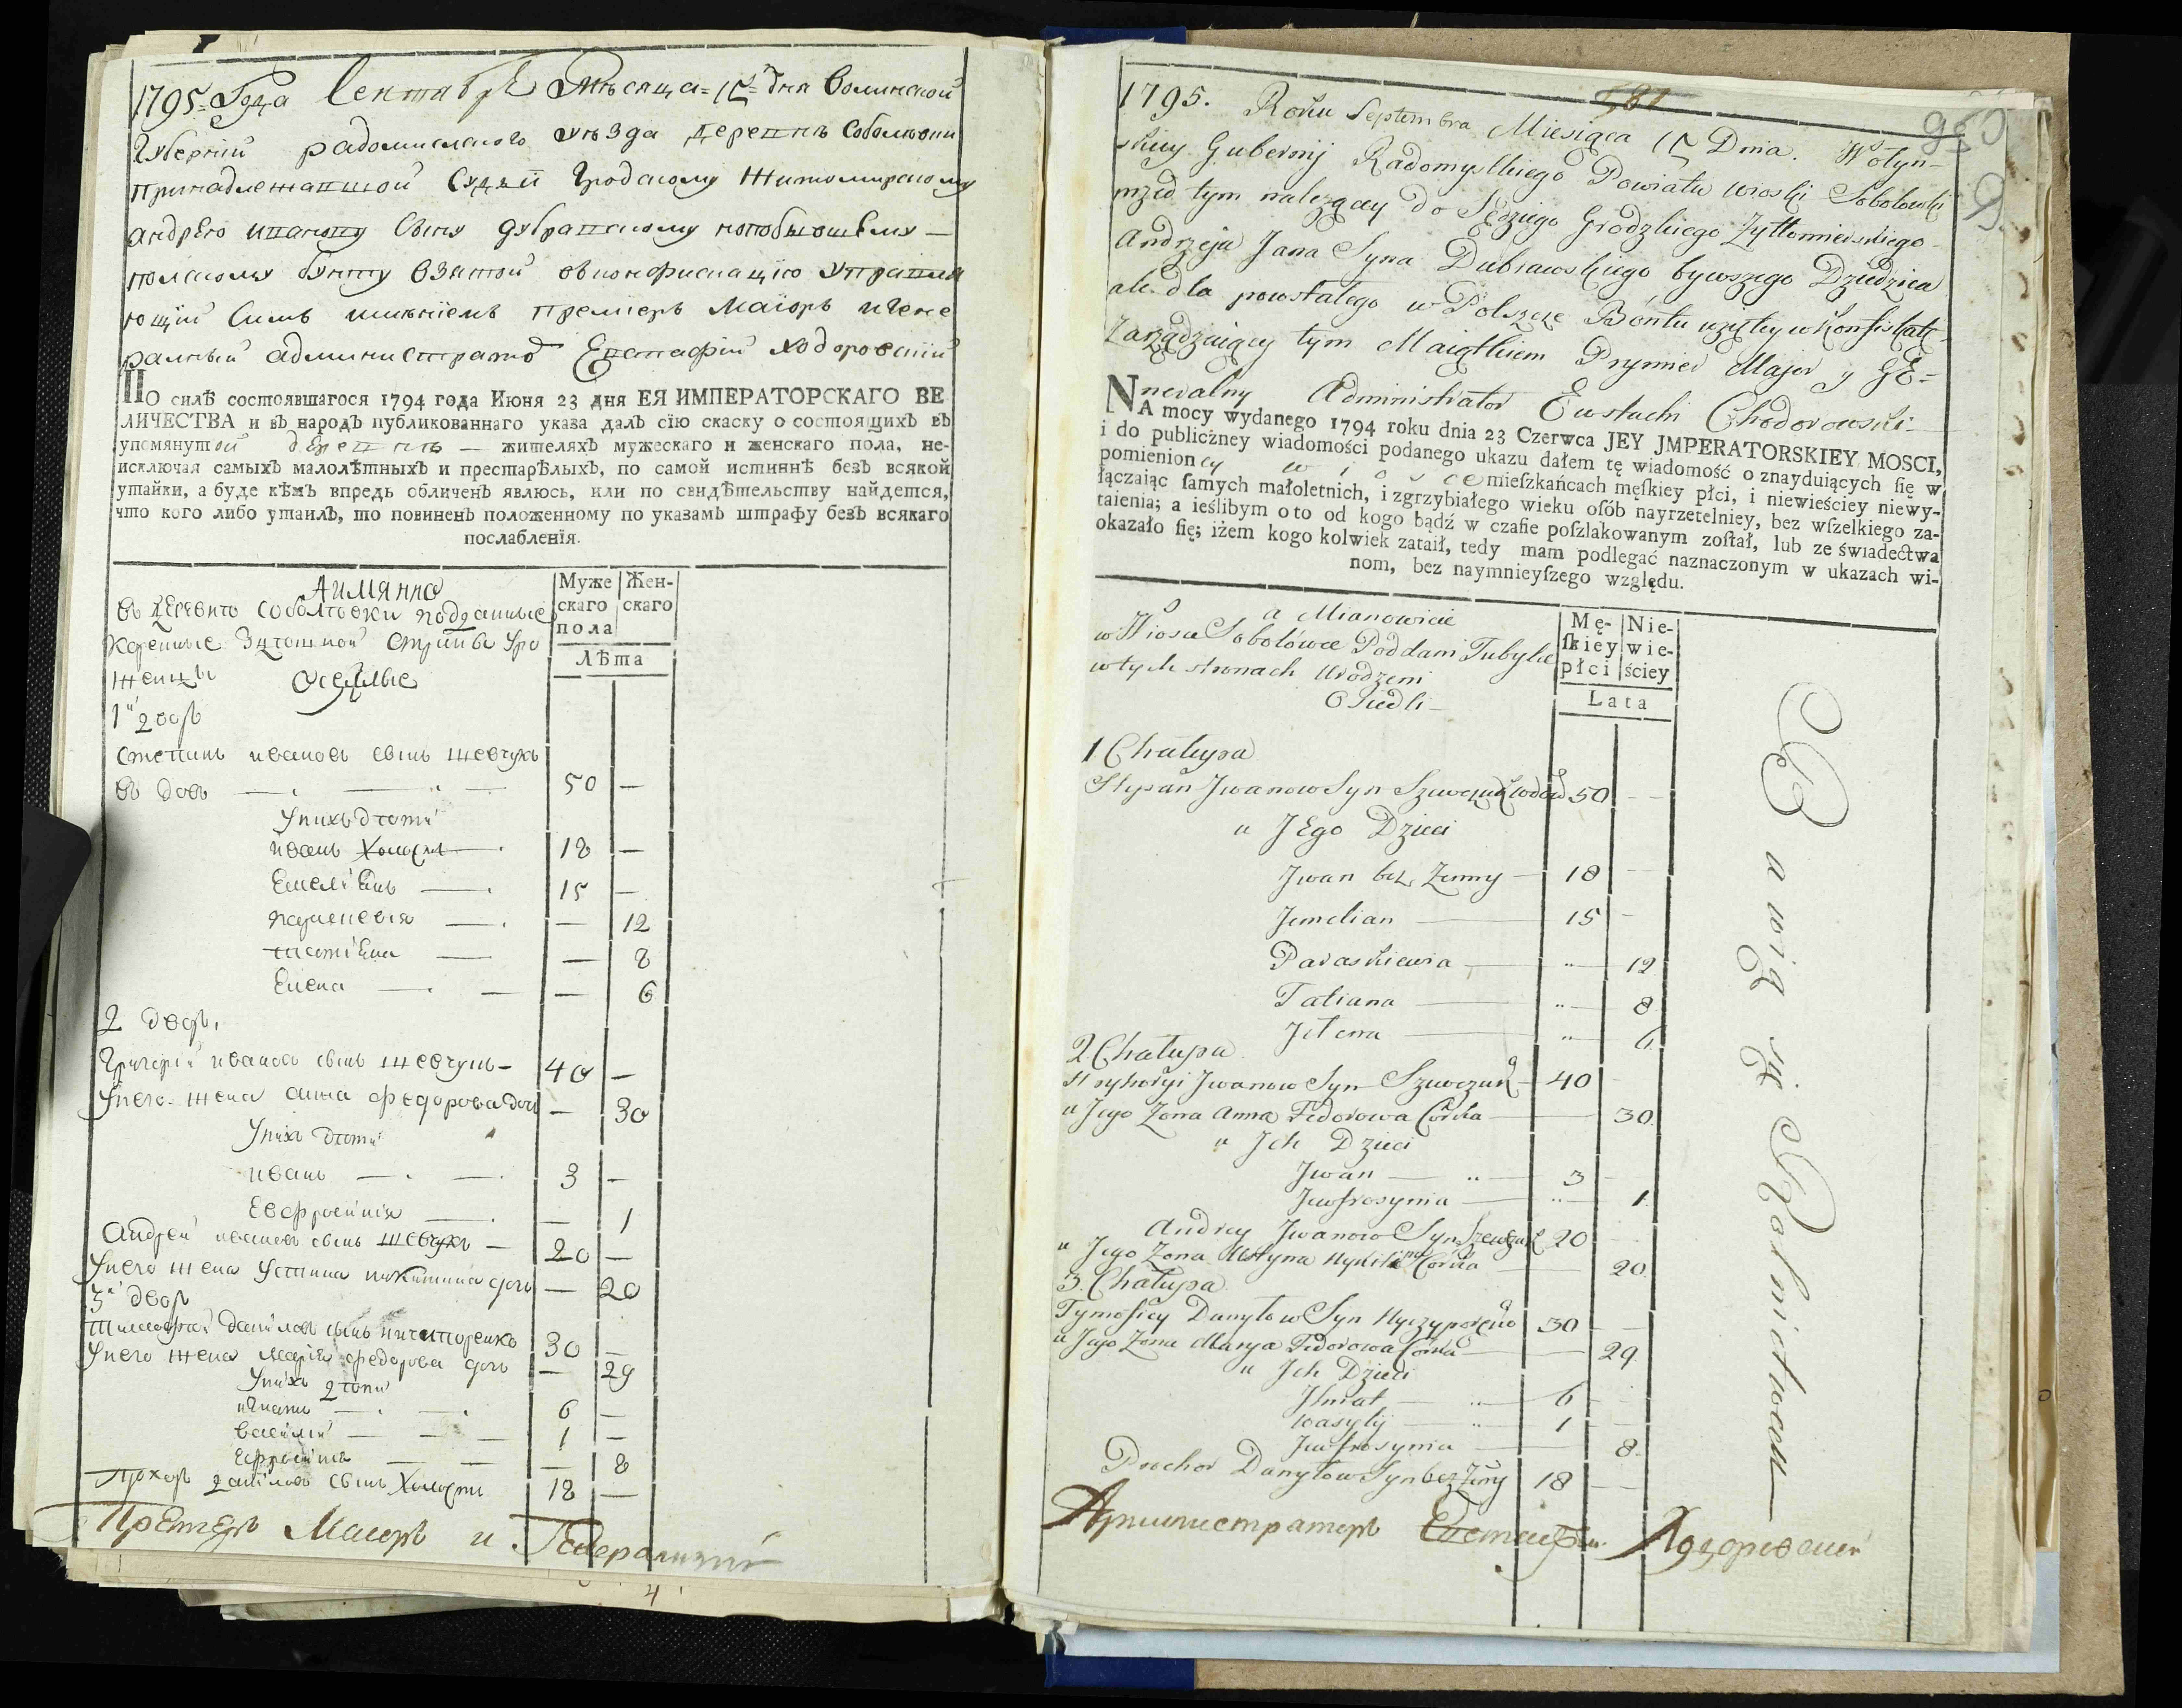 1795. Года Сентября Месяца 15 дня Волинской
Губернии радомислского уезда деревне Соболювки
принадлежавшой Судии Гродскому Житомирскому
андрею иванову Сыну дубравскому
полскому бунту взятой
ющий Симъ имениемъ премиеръ Маиоръ и гене
ралный администраторъ Евстафий Ходоровский
ПО силѣ состоявшагося 1794 года Июня 23 дня ЕЯ ИМПЕРАТОРСКАГО ВЕ
ЛИЧЕСТВА и въ народъ публикованнаго указа далъ сїю скаску о состоящихъ въ
упомянутой деревне — жителяхъ мужескаго и женскаго пола, не-
исключая самыхъ малолѣтныхъ и престарѣлыхъ, по самой истиннѣ безъ всякой
утайки, а буде кѣмъ впредь обличенъ явлюсь, или по свидѣтельству найдется,
что кого либо утаилъ, то повиненъ положенному по указамъ штрафу безъ всякаго
послабленїя.
Аимянно
въ деревне Соболювки подданные
коренные здешной страны уро
женцы оседлые
Муже Жен-
скаго скаго
пола
Лѣта
1й двор
степанъ иванов сынъ шевчукъ
вдов 50 —
у нихъ дети
иванъ холост 18 —
Емелиянъ 15 —
параскевия — 12
татияна — 8
Елена — 6
2 двор.
Григорий иванов сынъ шевчукъ 40 —
у него жена анна федорова дочь — 30
у них дети
иванъ 3 —
Евфросиния — 1
андрей иванов сынъ шевчукъ 20 —
у него жена устина никитина дочь — 20
3й двор
тимофей данилов сынъ ничипоренко 30 —
у него жена мария федорова дочь — 29
у них дети
игнатъ 6 —
василий 1 —
Ефросиния — 8
прохор данилов сынъ холост 18 —
Премьеръ Маиоръ и Генералний
4
581
1795. Roku Septembra Miesiąca 15 Dnia. Wołyn-
skiey Gubernij Radomyslkiego Powiatu wioski Sobolowki
przed tym należącey do Sędziego Grodzkiego Zytłomierskiego
Andrzeja Jana Syna Dubrawskiego bywszego Dziedzica
ale dla powstałego w Polszcze Bontu wziętey w Konfiskatę
Zarządzaiący tym Maiątkiem Prymier Major y GE=
neralny Administrator Eustachi Chodorowski
NA mocy wydanego 1794 roku dnia 23 Czerwca JEY JMPERATORSKIEY MOSCI,
i do publiczney wiadomości podanego ukazu dałem tę wiadomość o znayduiących ſię w
pomienioney wiosce mieſzkańcach męſkiey płci, i niewieściey niewy-
łączaiąc ſamych małoletnich, i zgrzybiałego wieku oſób nayrzetelniey, bez wſzelkiego za-
taienia; a ieślibym o to od kogo bądź w czaſie poſzlakowanym zoſtał, lub ze świadectwa
okazało ſię; iżem kogo kolwiek zataił, tedy mam podlegać naznaczonym w ukazach wi-
nom, bez naymnieyſzego względu.
a Mianowicie
w Wiosce Sobolówce Poddani Tubylce
w tych stronach Urodzeni
Osiedli
Mę- Nie-
ſkiey wie-
płci ściey
Lata
1 Chałupa
Stypan Jwanow Syn Szwczuk wdow 50
u JEgo Dzieci
Jwan bez Zenny 18
Jemelian 15
Paraskiewia 12
Tatiana 8
Jelena 6
2 Chałupa
Hryhoryi Jwanow Syn Szwczuk 40
u Jego Zona Anna Fedorowa Córka 30
u Jch Dzieci
Jwan 3
Jewfrosynia 1
Andrey Jwanow Syn Szewczuk 20
u Jego Zona Ustyna Nykitina Córka 20
3 Chałupa
Tymofiey Danyłow Syn Nyczyporeno 30
u Jego Zona Marya Fedorowa Córka 29
u Jch Dzieci
Jhnat 6
wasylij 1
Jewfrosynia 8
Prochor Danyłow Syn bez Żeny 18
Bawią się Rolnictwem
Администраторъ Евстафий Ходоровский